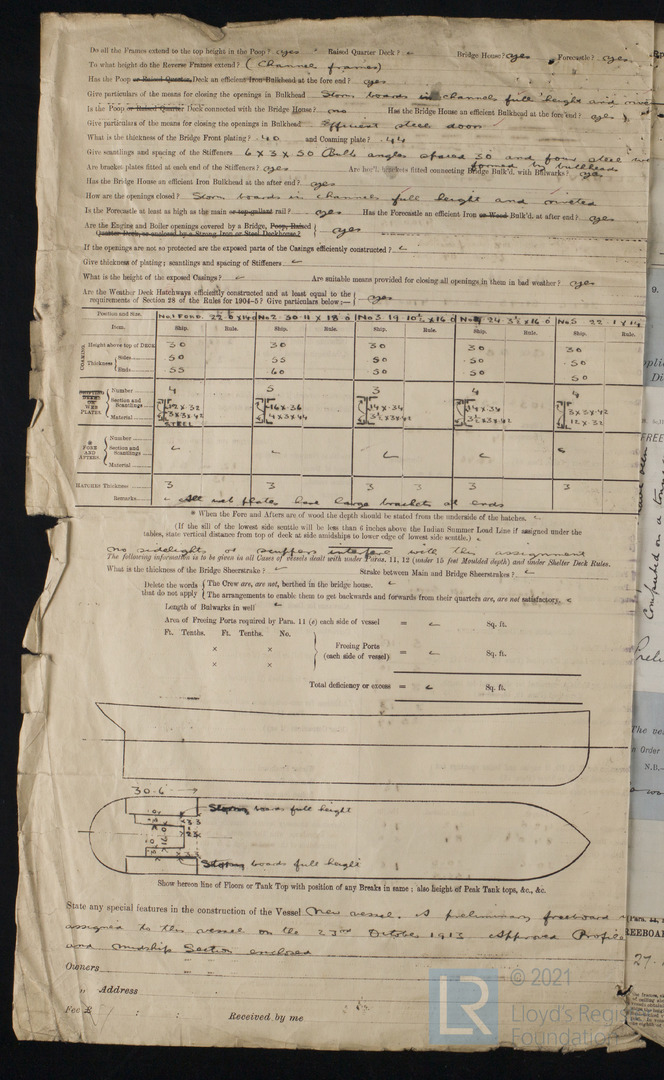 Do all the Frames extend to the top height in the Poop? ayes Raised Quarter Deck? Bridge House? ayes Forecastle? ayes
To what height do the Reverse Frames extend? (Channel frames)
Has the Poop or Raised Quarter Deck an efficient Iron Bulkhead at the fore end? ayes
Give particulars of the means for closing the openings in Bulkhead Storm boards in channels full height and
Is the Poop or Raised Quarter Deck connected with the Bridge House? no Has the Bridge House an efficient Bulkhead at the fore end? ayes
Give particulars of the means for closing the openings in Bulkhead Efficient steel door
What is the thickness of the Bridge Front plating? .40 and Coaming plate? .44
Give scantlings and spacing of the Stiffeners 6 x 3 x 50 Bulb angles spaced 30 and four steel
Are bracket plates fitted at each end of the Stiffeners? ayes Are hor'l. brackets fitted connecting Bridge Bulk'd. with Bulwarks? formed by bulkheads ayes
Has the Bridge House an efficient Iron Bulkhead at the after end? ayes
How are the openings closed? Storm boards in channels full height and riveted
Is the Forecastle at least as high as the main or top-gallant rail? ayes Has the Forecastle an efficient Iron or Wood Bulk'd. at after end? ayes
Are the Engine and Boiler openings covered by a Bridge, Poop, Raised Quarter Deck, or enclosed by a Strong Iron or Steel Deckhouse? ayes
If the openings are not so protected are the exposed parts of the Casings efficiently constructed?
Give thickness of plating; scantlings and spacing of Stiffeners
What is the height of the exposed Casings? Are suitable means provided for closing all openings in them in bad weather? ayes
Are the Weather Deck Hatchways efficiently constructed and at least equal to the
requirements of Section 28 of the Rules for 1904-5? Give particulars below:— ayes
Position and Size. No1 Ford. 22.0 x 14.0 No2 30.11 x 18.0 No3 19.10½ x 16.0 24.3½ x 16.0 No5 22.1 x 14
Item. Ship. Rule. Ship. Rule. Ship. Rule. Ship. Rule. Ship. Rule.
COAMING
Height above top of DECK 30 30 30 30 30
Thickness Sides 50 55 50 50 50
Ends 55 60 50 50 50
SHIFTING BEAMS OR WEB PLATES.
Number 4 5 3 4 4
Section and Scantlings 12 x 32 16 x 36 14 x .34 14 x .34 3 x 3 x .42
3 x 3 x 42 4 x 3 x 44 3½ x 3 x 42 3½ x 3 x 42 12 x 32
Material STEEL
* FORE AND AFTERS.
Number
Section and Scantlings
Material
HATCHES Thickness 3 3 3 3 3 3
Remarks. All web plates have large brackets at ends
* When the Fore and Afters are of wood the depth should be stated from the underside of the hatches.
(If the sill of the lowest side scuttle will be less than 6 inches above the Indian Summer Load Line if assigned under the
tables, state vertical distance from top of deck at side amidships to lower edge of lowest side scuttle.)
no sidelights or scuppers interfere with this assignment
The following information is to be given in all Cases of vessels dealt with under Paras. 11, 12 (under 15 feet Moulded depth) and under Shelter Deck Rules.
What is the thickness of the Bridge Sheerstrake? Strake between Main and Bridge Sheerstrakes?
Delete the words that do not apply
The Crew are, are not, berthed in the bridge house.
The arrangements to enable them to get backwards and forwards from their quarters are, are not satisfactory.
Length of Bulwarks in well
Area of Freeing Ports required by Para. 11 (e) each side of vessel = Sq. ft.
Ft. Tenths. Ft. Tenths. No.
× ×
Freeing Ports (each side of vessel) = Sq. ft.
× ×
Total deficiency or excess = Sq. ft.
30.6
Storm boards full height
Storm boards full height
Show hereon line of Floors or Tank Top with position of any Breaks in same; also height of Peak Tank tops, &c., &c.
State any special features in the construction of the Vessel New vessel. A preliminary freeboard
assigned to this vessel on the 23rd October 1913 Approved Profile
and Midship Section enclosed
Owners
" Address
Fee £ : : Received by me
© 2021
LR
Lloyd's Regis
Foundation
9.
Di
FREE
Computed on a
The ve
n Order
N.B.—
REEBOAR
27